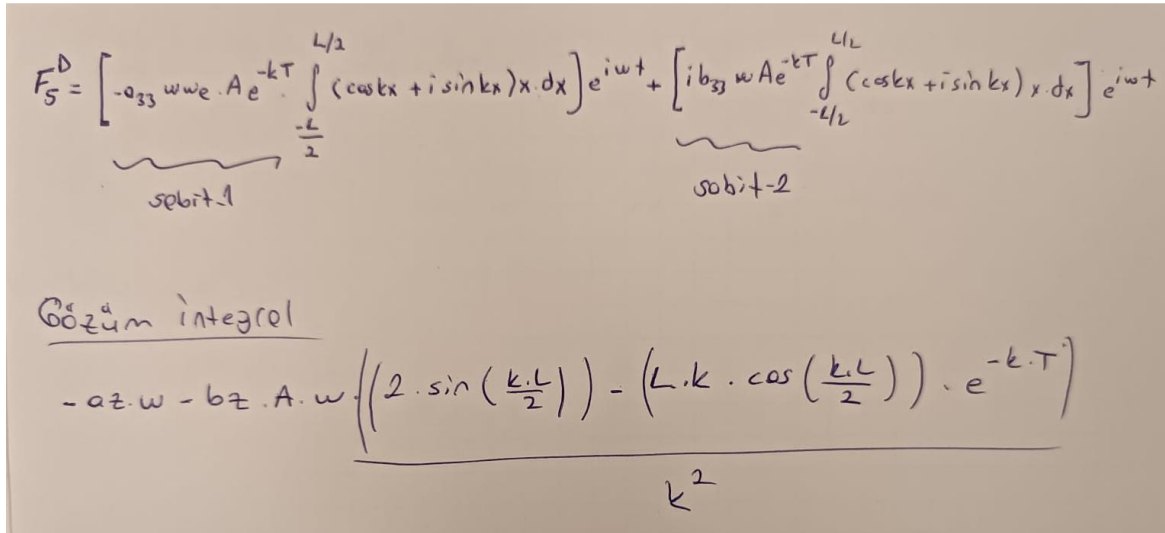 F₅ᴰ = [-a₃₃ w we . A e^{-kT} . ∫_{-L/2}^{L/2} (coskx + i sinkx) x . dx] e^{iwt} + [i b₃₃ w A e^{-kT} ∫_{-L/2}^{L/2} (coskx + i sin kx) x . dx] e^{iwt}
sabit-1 sabit-2
Çözüm integral
- az . w - bz . A . w . ((2 . sin (k.L/2)) - (L.k . cos (k.L/2)) . e^{-k.T}) / k²